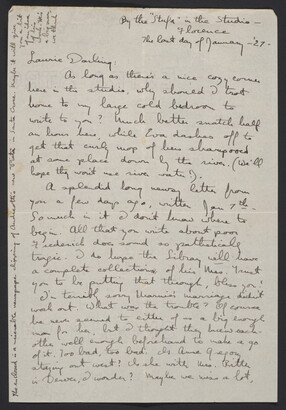 By the "Stufa" in the Studio -
Florence
The last day of January - '27 -
Laurie Darling:
As long as there's a nice cozy corner
here in the studio, why should I trot
home to my large cold bedroom to
write to you? Much better snatch half
an hour here, while Eva dashes off to
get that curly mop of hers shampooed
at some place down by the river. (We'll
hope they won't use river water!).
A splendid long newsy letter from
you a few days ago, written Jan 7th.
So much in it I don't know where to
begin. All that you write about poor
Frederick does sound so pathetically
tragic. I do hope the Library will have
a complete collection of his Mss. Trust
you to be putting that through, bless you!
I'm terribly sorry marriage didn't
work out. What was the trouble? Of course
he never seemed to either of us a big enough
man for her, but I thought they knew each
other well enough beforehand to make a go
of it. Too bad, too bad. Is Anne Gregory
staying out west? Is she with Mrs.
in Denver, I wonder? Maybe we miss a lot